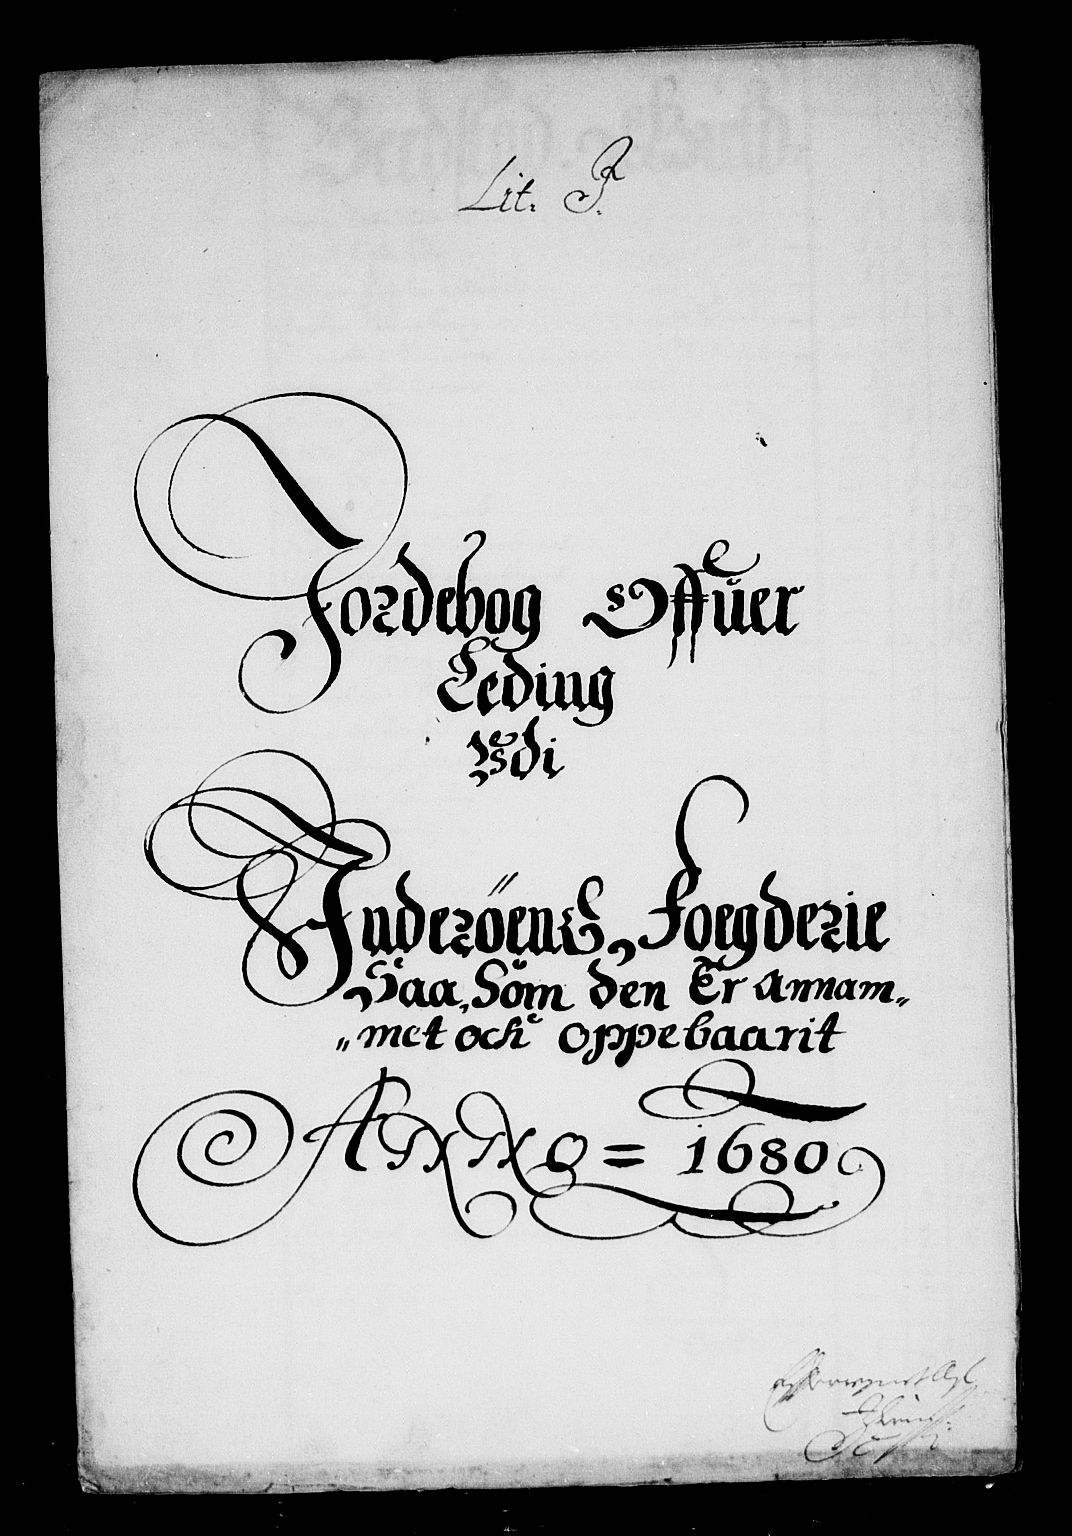 Lit. F.
Jordebog Offuer
Leding
Udi
Inderöens Foegderie
Saa Som den Er Annam„
„met och oppebaarit
Anno = 1680